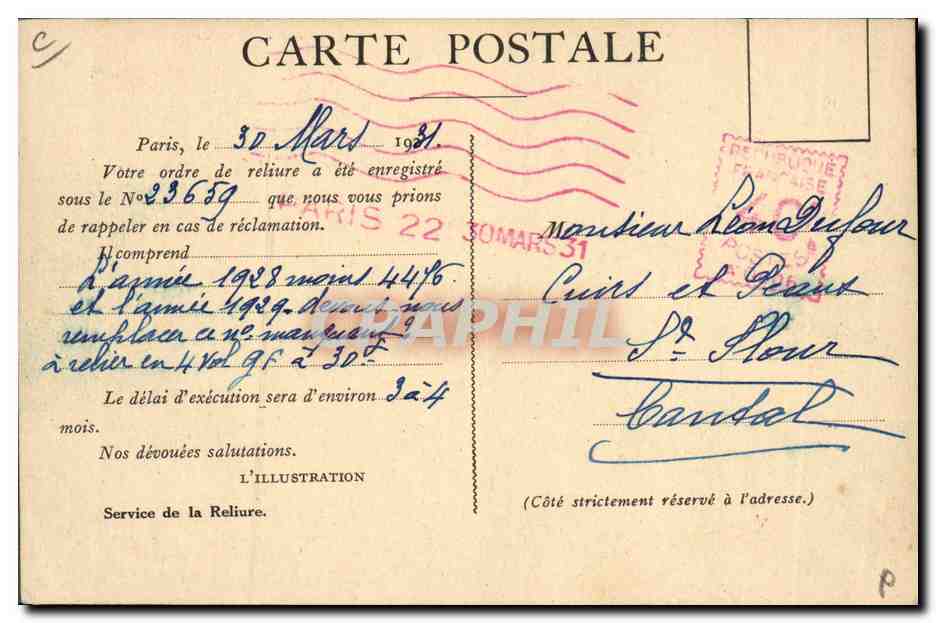 C
CARTE POSTALE
Paris, le 30 Mars 1931.
Votre ordre de reliure a été enregistré
sous le Nº 23659 que nous vous prions
de rappeler en cas de réclamation.
Il comprend
L'année 1928 moins 4476
et l'année 1929. devons-nous
remplacer ce nº manquant ?
à relier en 4 vol gf à 30f
Le délai d'exécution sera d'environ 3 à 4
mois.
Nos dévouées salutations.
L'ILLUSTRATION
Service de la Reliure.
PARIS 22 30 MARS 31
REPUBLIQUE
FRANÇAISE
40
POSTES
Monsieur Léon Dufour
Cuirs et Peaux
St Flour
Cantal
(Côté strictement réservé à l'adresse.)
DELCAMPHIL
P